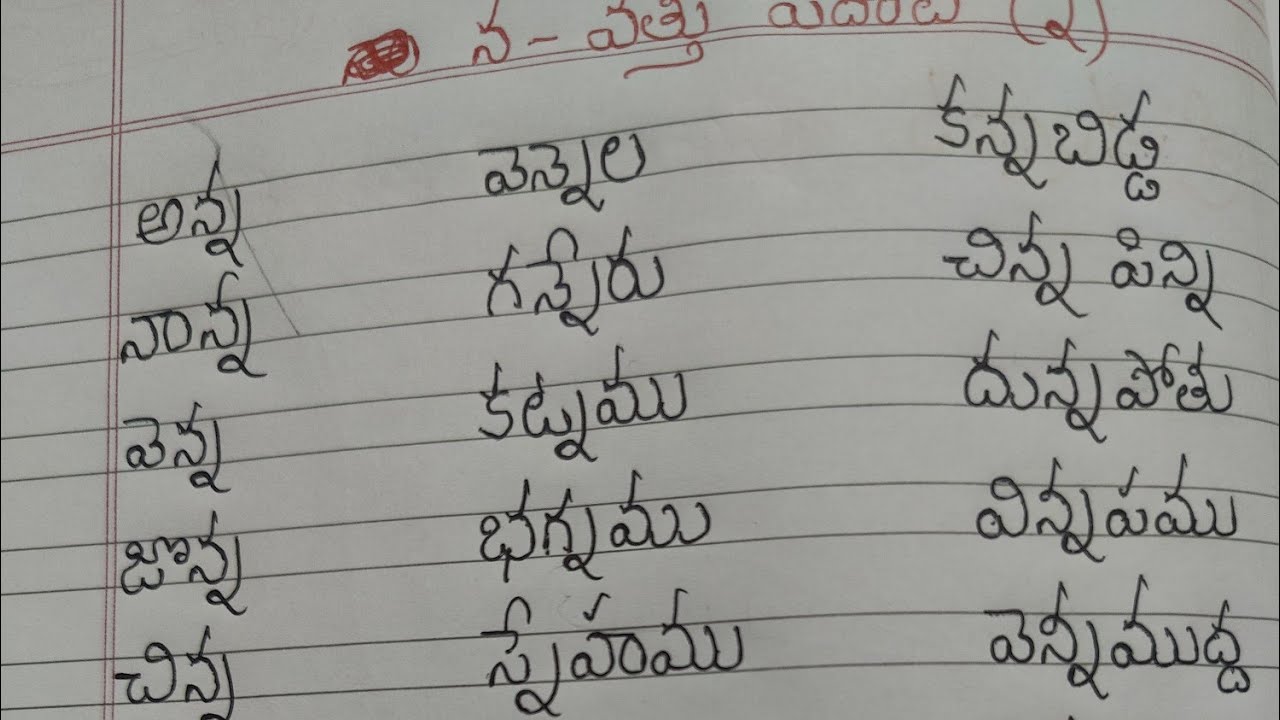 న - వత్తు పదాలు (2)
అన్న వెన్నెల కన్నబిడ్డ
నాన్న గన్నేరు చిన్న పిన్ని
వెన్న కట్నము దున్నపోతు
జొన్న భగ్నము విన్నపము
చిన్న స్నేహము వెన్నముద్ద